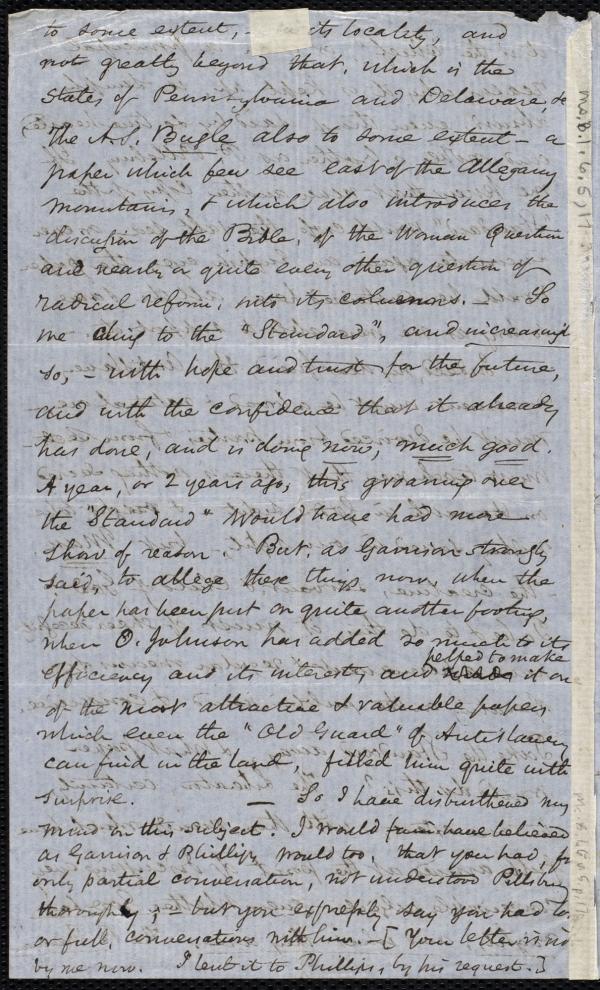 to some extent, - its locality, and
not greatly beyond that, which is the
States of Pennsylvania and Delaware, &
The A.S. Bugle also to some extent - a
paper which few see east of the Allegany
mountains, & which also introduces the
discussion of the Bible, of the Woman Question
and nearly or quite every other question of
radical reform, into its columns. - So
we cling to the "Standard", and increasingly
so, - with hope and trust for the future,
and with the confidence that it already
has done, and is doing now, much good.
A year, or 2 years ago, this groaning over
the "Standard" would have had more
show of reason. But, as Garrison strongly
said, to allege these things now, when the
paper has been put on quite another footing,
when O. Johnson has added so much to its
efficiency and its interest, and helped to make it one
of the most attractive & valuable papers
which even the "Old Guard" of Antislavery
can find in the land, filled him quite with
surprise. — So I have disburthened my
mind on this subject. I would fain have believed
as Garrison & Phillips would too, that you had, fr
only partial conversation, not understood Pillsbury
thoroughly; - but you expressly say you had to
or full, conversations with him. - [Your letter is no
by me now. I lent it to Phillips, by his request.]